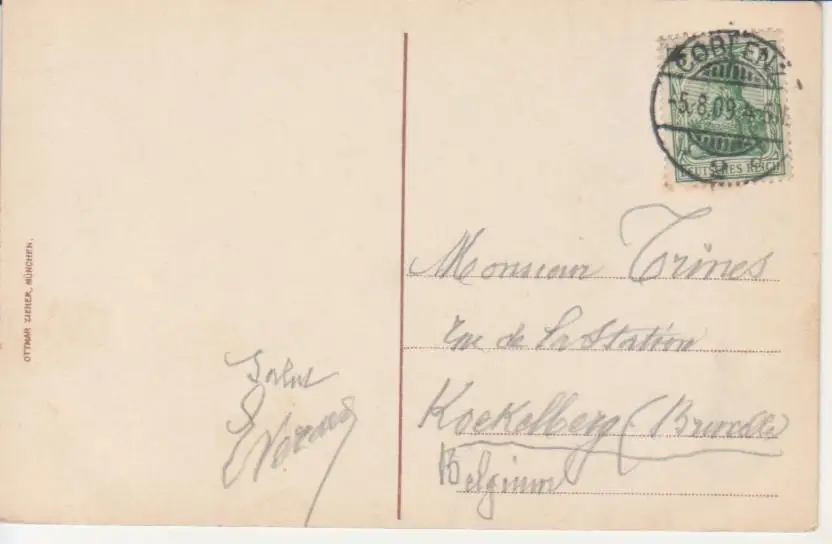 COBLENZ
-5.8.09.4-5N
DEUTSCHES REICH
OTTMAR ZIEHER, MÜNCHEN.
Monsieur Trines
Rue de la Station
Koekelberg (Bruxelles)
Belgium
Salut